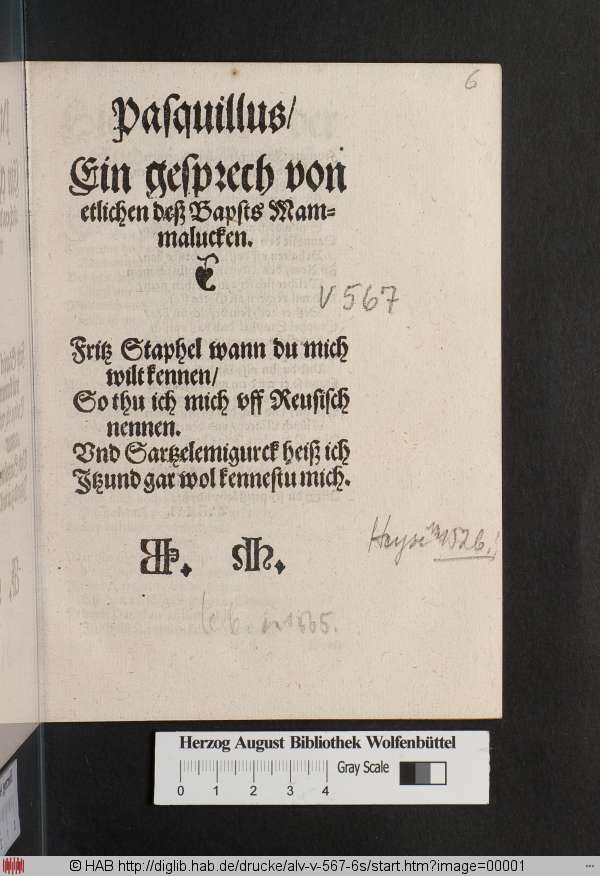 6
Pasquillus/
Ein gesprech von
etlichen deß Bapsts Mam=
malucken.
V 567
Fritz Staphel wann du mich
wilt kennen/
So thu ich mich vff Reusisch
nennen.
Vnd Sartzelemigurck heiß ich
Jtzund gar wol kennestu mich.
1526.
Herzog August Bibliothek Wolfenbüttel
Gray Scale
0 1 2 3 4
© HAB http://diglib.hab.de/drucke/alv-v-567-6s/start.htm?image=00001